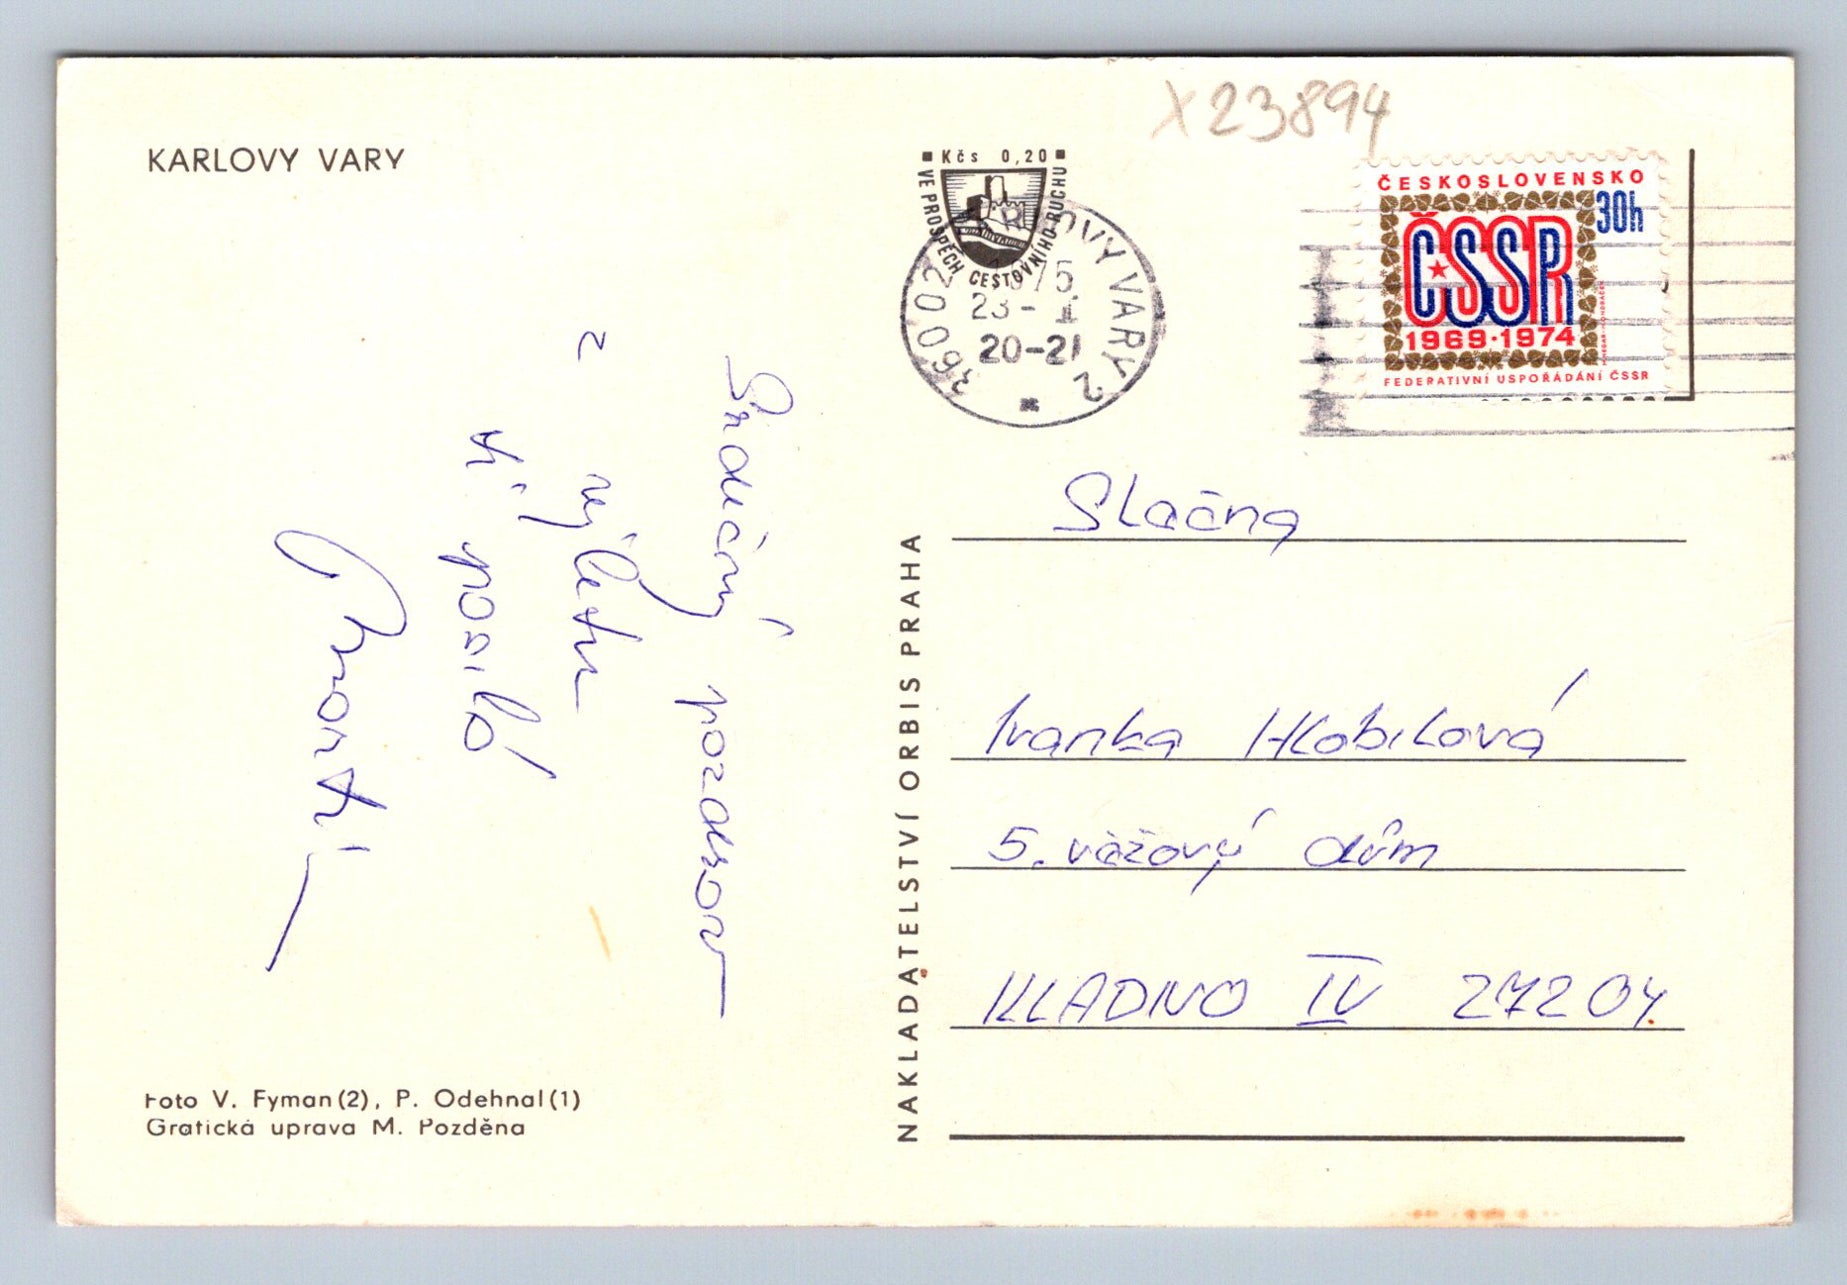 KARLOVY VARY
Srdečný pozdrav
z výletu
ti posílá
Foto V. Fyman(2), P. Odehnal(1)
Grafická úprava M. Pozděna
NAKLADATELSTVÍ ORBIS PRAHA
X23894
Kčs 0,20
VE PROSPĚCH CESTOVNÍHO RUCHU
36002 KARLOVY VARY 2
1975
23-
20-21
ČESKOSLOVENSKO
30h
ČSSR
1969·1974
FEDERATIVNÍ USPOŘÁDÁNÍ ČSSR
Slečna
Ivanka Hlobilová
5. věžový dům
KLADNO IV 27204